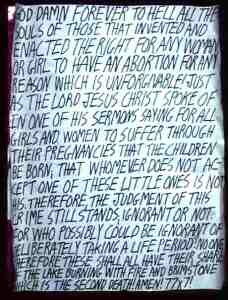 GOD DAMN FOREVER TO HELL ALL THE
SOULS OF THOSE THAT INVENTED AND
ENACTED THE RIGHT FOR ANY WOMAN
OR GIRL TO HAVE AN ABORTION FOR ANY
REASON WHICH IS UNFORGIVABLE! JUST
AS THE LORD JESUS CHRIST SPOKE OF
IN ONE OF HIS SERMONS SAYING FOR ALL
GIRLS AND WOMEN TO SUFFER THROUGH
THEIR PREGNANCIES THAT THE CHILDREN
BE BORN, THAT WHOMEVER DOES NOT AC-
CEPT ONE OF THESE LITTLE ONES IS NOT
HIS. THEREFORE, THE JUDGMENT OF THIS
CRIME STILL STANDS, IGNORANT OR NOT.
FOR WHO POSSIBLY COULD BE IGNORANT OF
DELIBERATELY TAKING A LIFE PERIOD? NO ONE
THEREFORE THESE SHALL HAVE THEIR SHARE
IN THE LAKE BURNING WITH FIRE AND BRIMSTONE
WHICH IS THE SECOND DEATH! AMEN!